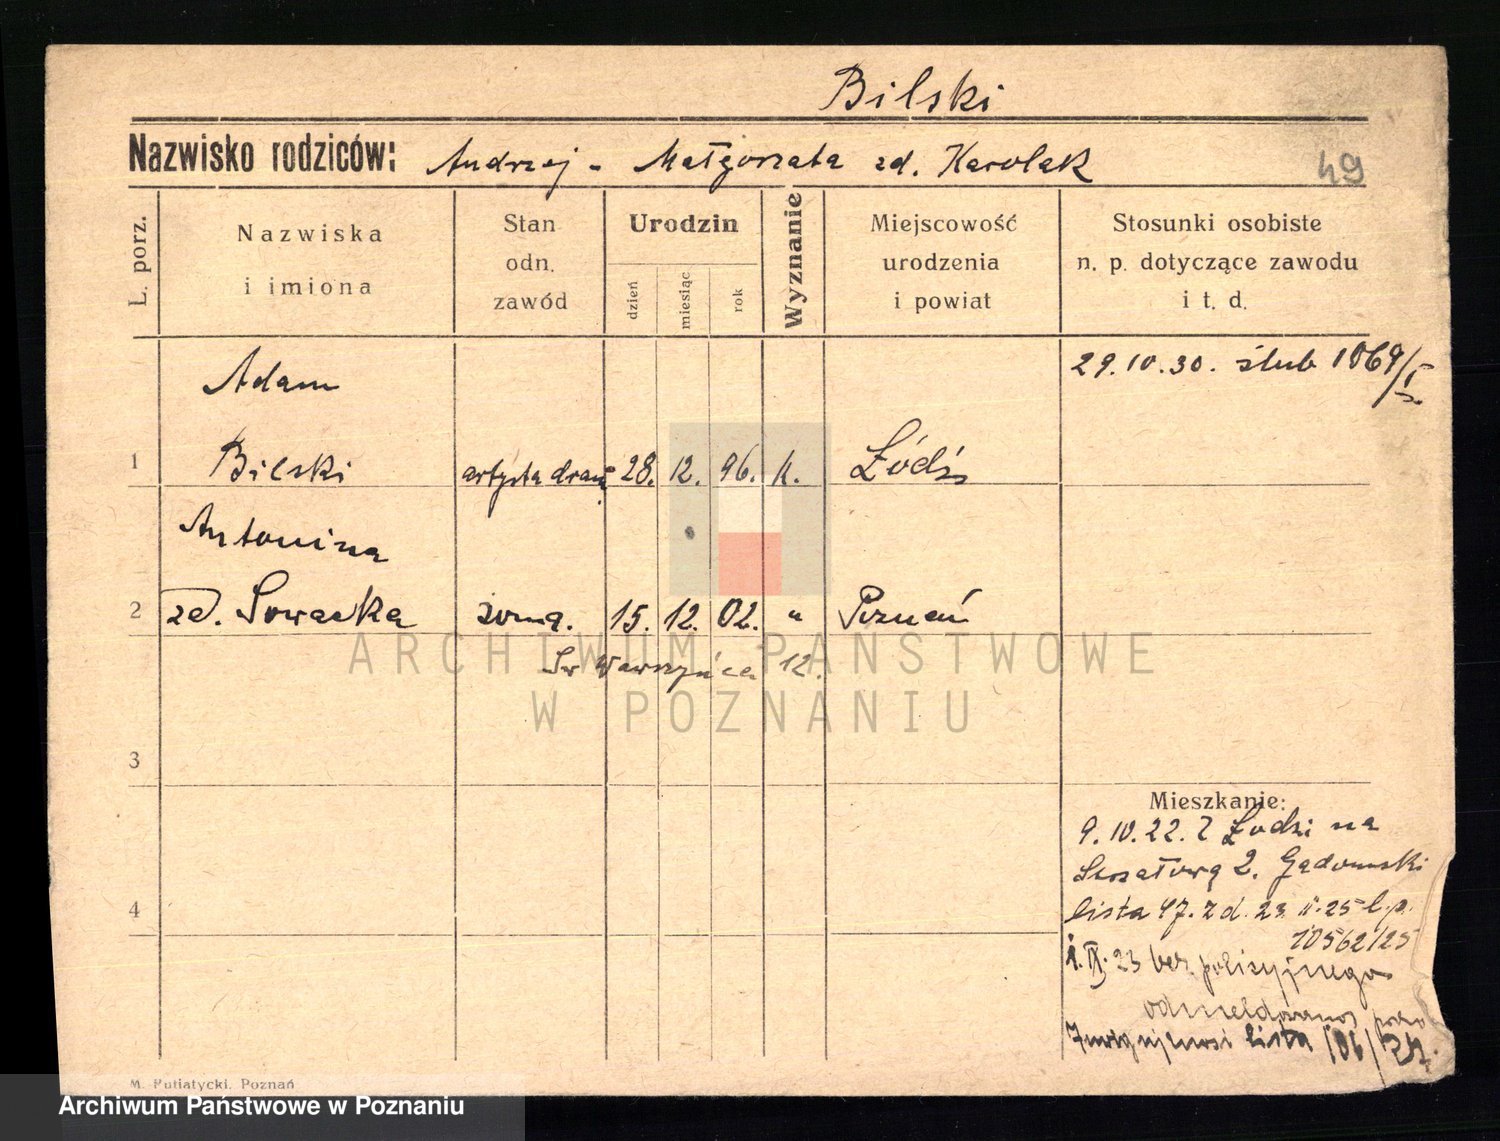 Bilski
Nazwisko rodziców: Andrzej - Małgorzata zd. Karolak
49
L. porz.
Nazwiska
i imiona
Stan
odn.
zawód
Urodzin
dzień
miesiąc
rok
Wyznanie
Miejscowość
urodzenia
i powiat
Stosunki osobiste
n. p. dotyczące zawodu
i t. d.
29.10.30. ślub 1069/I
Adam
1 Bilski artysta dram. 28. 12. 96. k. Łódź
Antonina
2 zd. Sowacka żona. 15. 12. 02. " Poznań
Św Wawrzyńca 12.
3
Mieszkanie:
9.10.22. z Łodzi na
2. Gądomski
4
lista 47. zd. 23 II.25 l.p.
10562/25
1.IX.23 bez policyjnego
lista 106/
M. Putiatycki, Poznań
ARCHIWUM PAŃSTWOWE
W POZNANIU
Archiwum Państwowe w Poznaniu